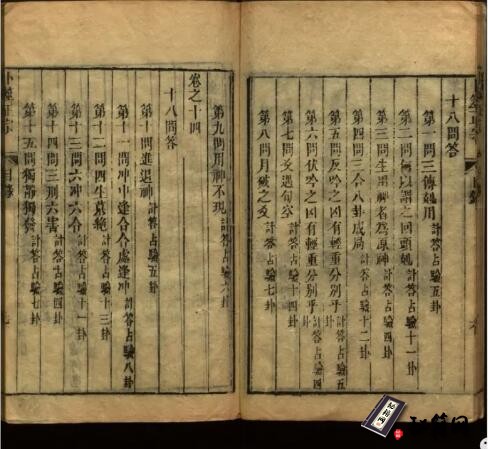 十八問答
第一問三傳剋用 計答占驗五卦
第二問何以謂之回頭剋 計答占驗十一卦
第三問生用神者為原神 計答占驗
第四問三合八卦成局 計答占驗十二卦
第五問反吟之凶有輕重分別乎 計答占驗五
第六問伏吟之凶有輕重分別乎 計答占驗四
第七問爻遇旬空 計答占驗
第八問月破之爻 計答占驗七卦
第九問用神不現 計答占驗六卦
卷之十四
十八問答
第十問進退神 計答占驗五卦
第十一問冲中逢合合處逢冲 計答占驗八卦
第十二問四生墓絶 計答占驗十三卦
第十三問六冲六合 計答占驗十一卦
第十四問三刑六害 計答占驗四卦
第十五問獨靜獨發 計答占驗七卦
目錄